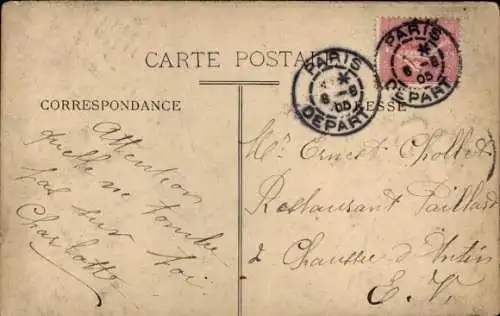 CARTE POSTALE
PARIS
6 - 8
05
DEPART
PARIS
6 - 8
05
DEPART
CORRESPONDANCE
ADRESSE
Attention
qu'elle ne tombe
pas sur toi
Charlotte
Mr. Ernest Chollet
Restaurant Paillard
2 Chaussée d'Antin
E. V.